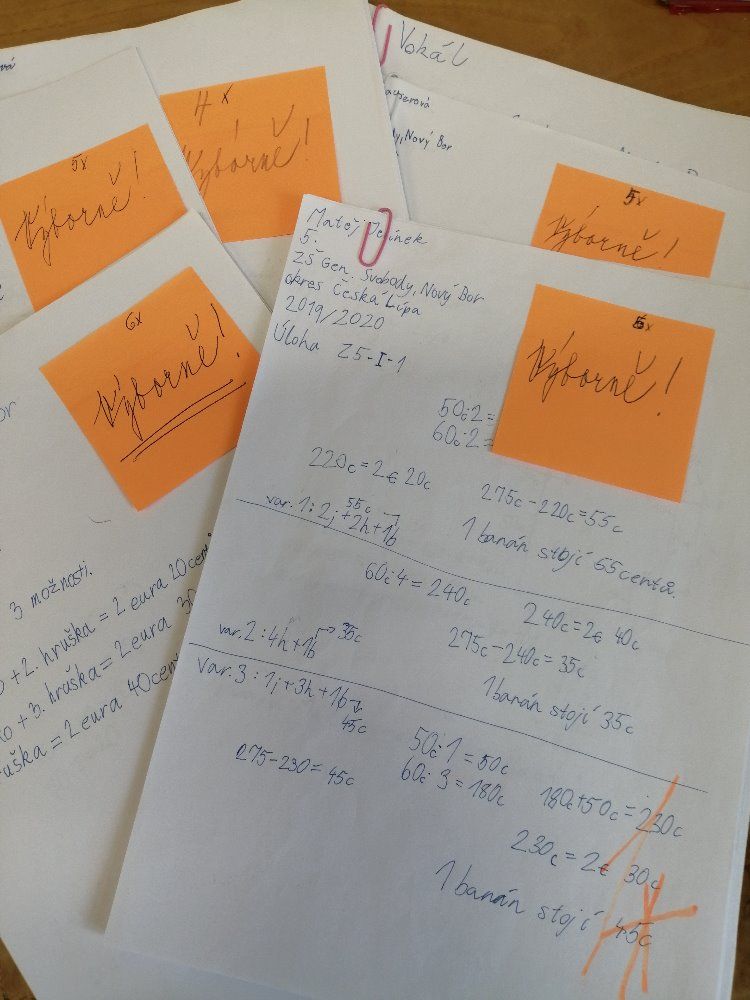 Vokál
H x
Výborně!
5x
Výborně!
Nový Bor
5x
Výborně!
6x
Výborně!
Matěj Jelínek
5.
ZŠ Gen. Svobody, Nový Bor
okres Česká Lípa
2019/2020
Úloha Z5-I-1
6x
Výborně!
50·2=
60·2=
220c = 2€ 20c
275c - 220c = 55c
var. 1: 2j + 2h + 1b
55c
1 banán stojí 55 centů.
60·4 = 240c
240c = 2€ 40c
var. 2: 4h + 1b
35c
275c - 240c = 35c
1 banán stojí 35c
var. 3: 1j + 3h + 1b
45c
50·1 = 50c
60·3 = 180c
180c + 50c = 230c
275 - 230 = 45c
230c = 2€ 30c
1 banán stojí 45c
3 možnosti.
+ 2. hruška = 2 eura 20 cent
+ 3. hruška = 2 eura 30
uška = 2 eura 40 cent